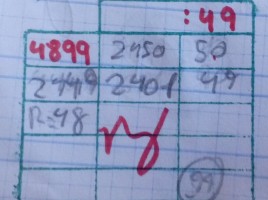 :49
4899 2450 50
2449 2401 49
R=48
99